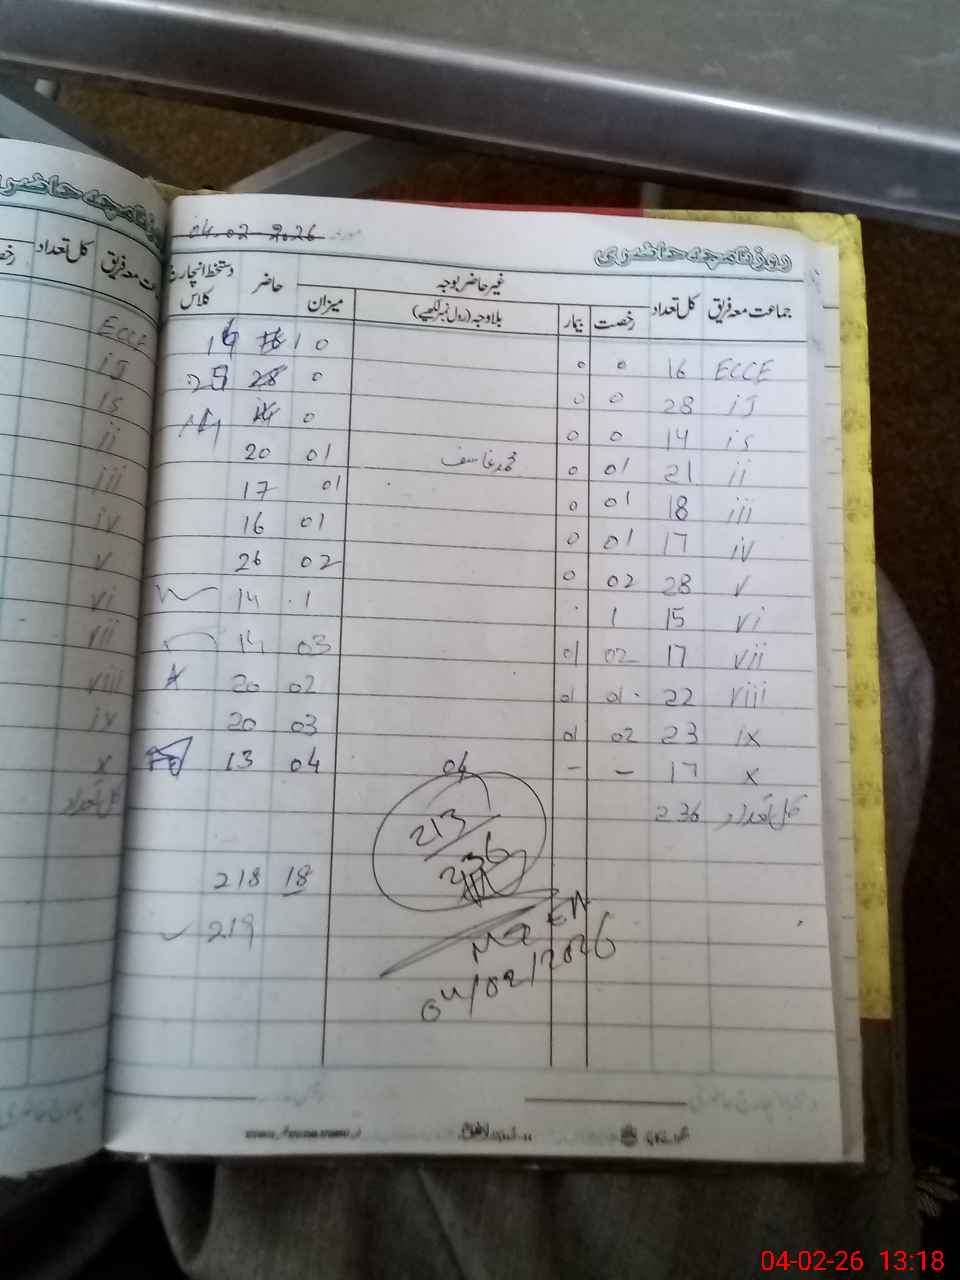 مورخہ 04.02-2026
روزنامچہ حاضری
جماعت معہ فریق کل تعداد رخصت بیمار بلاوجہ (رول نمبر لکھیے) میزان حاضر دستخط انچارج کلاس
غیر حاضر بوجہ
ECCE 16 0 0 0
i 28 0 0 0 28 25
is 14 0 0 0 14
ii 21 01 0 محمد عاسف 01 20
iii 18 01 0 01 17
iv 17 01 0 01 16
v 28 02 0 02 26
vi 15 1 1 14
vii 17 02 01 03 14
viii 22 01 01 02 20
ix 23 02 01 03 20
x 17 - - 04 04 13
کل تعداد 236
213
236
18 218
219
04/02/2026
روزنامچہ حاضری
جماعت معہ فریق کل تعداد رخصت
ECCE
is
ii
iii
iv
v
vi
vii
viii
x
کل تعداد
04-02-26 13:18